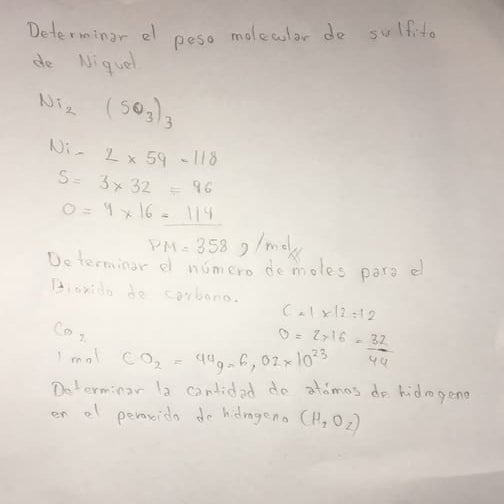 Determinar el peso molecular de sulfito
de Niquel
Ni₂ (SO₃)₃
Ni - 2 x 59 = 118
S = 3 x 32 = 96
O = 9 x 16 = 114
PM = 358 g/mol
Determinar el número de moles para el
Dioxido de carbono.
C = 1 x 12 = 12
O = 2 x 16 = 32
44
Co₂
1 mol CO₂ = 44g = 6,02 x 10²³
Determinar la cantidad de atómos de hidrogeno
en el peroxido de hidrogeno (H₂O₂)